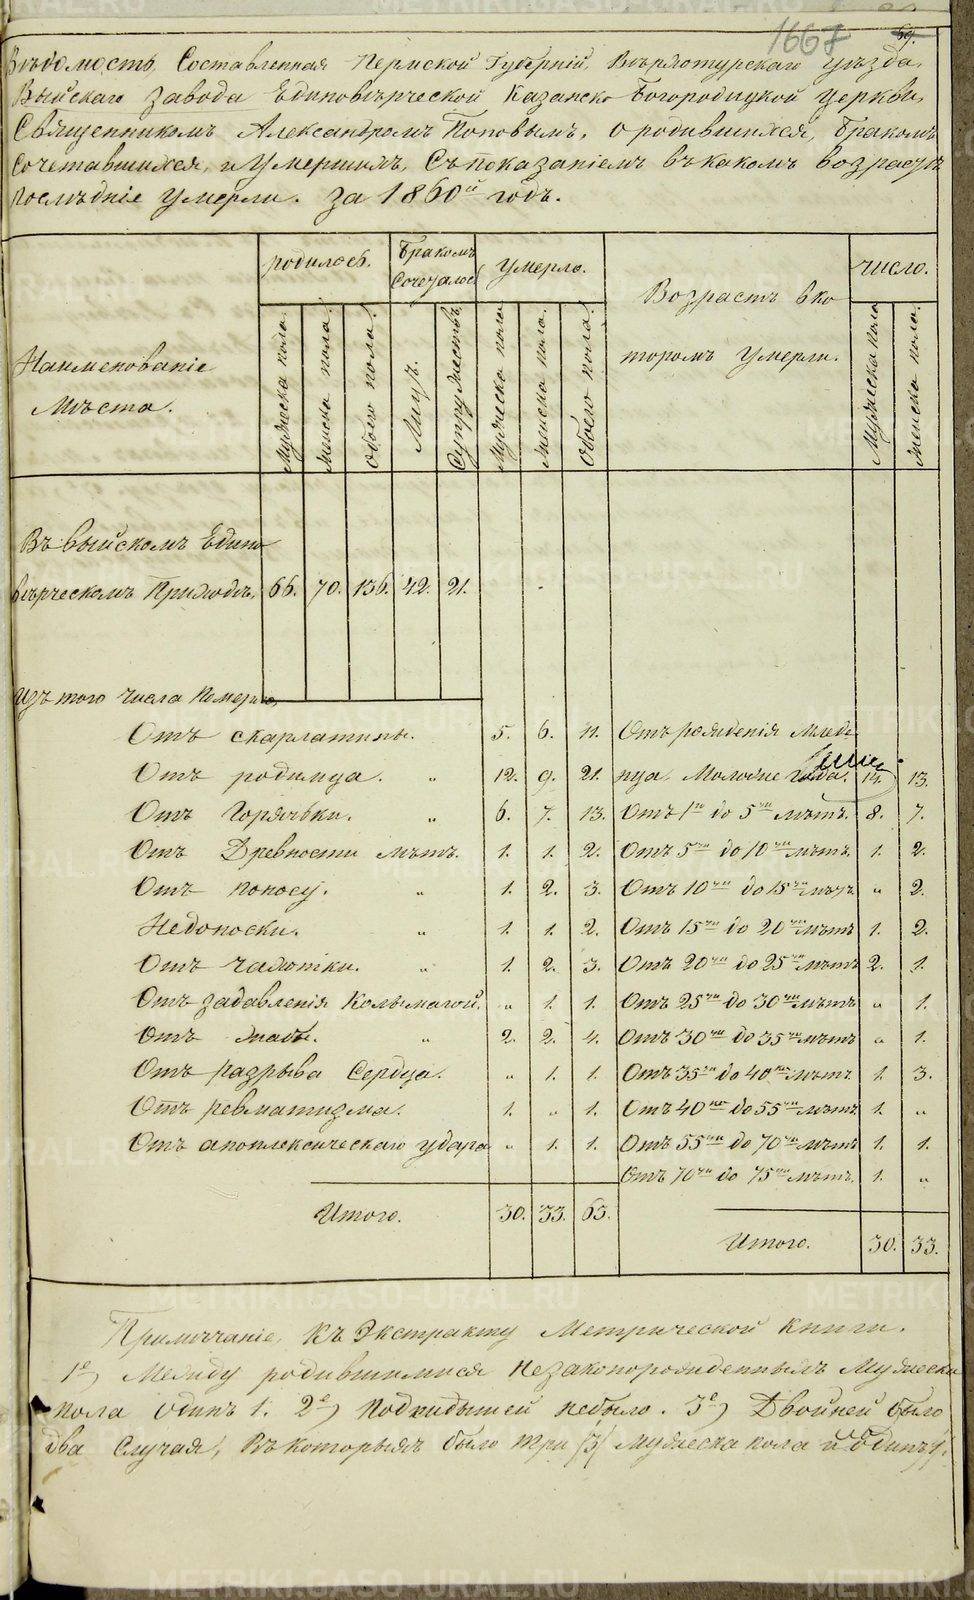 1667
59.
Вѣдомость, Составленная Пермской Губерніи Верхотурскаго уѣзда,
Выйскаго завода Единовѣрческой Казанско Богородицкой Церкви,
Священникомъ Александромъ Поповымъ, о родившихся, бракомъ
сочетавшихся, и Умершихъ, Съ показаніемъ въ какомъ возрастѣ
послѣдніе умерли. За 1860й годъ.
Наименованіе Мѣста. родилось. Бракомъ Сочеталось умерло. Возрастъ в ко число.
Мужеска пола. Женска пола. Обоего пола. Лицъ. Супружествъ. Мужеска пола. Женска пола. Обоего пола. торомъ умерли. Мужеска пола Женска пола.
Въ Выйскомъ Едино
вѣрческомъ Приходѣ, 66. 70. 136. 42. 21.
Изъ того числа померло,
Отъ скарлатины. 5. 6. 11. Отъ рожденія младе
Отъ родимца. " 12. 9. 21. нца. Моложе года. 14. 13.
Отъ Горячьки. " 6. 7. 13. Отъ 1го до 5ти лѣтъ. 8. 7.
Отъ Древности лѣтъ. 1. 1. 2. Отъ 5ти до 10ти лѣтъ. 1. 2.
Отъ поносу. " 1. 2. 3. Отъ 10ти до 15ти лѣтъ " 2.
Недоноски. " 1. 1. 2. Отъ 15ти до 20ти лѣтъ 1. 2.
Отъ чахотки. " 1. 2. 3. Отъ 20ти до 25ти лѣтъ 2. 1.
Отъ задавленія Колымагой. " 1. 1. Отъ 25ти до 30ти лѣтъ " 1.
Отъ жабы. " 2. 2. 4. Отъ 30ти до 35ти лѣтъ " 1.
Отъ разрыва Сердца. " 1. 1. Отъ 35ти до 40ти лѣтъ. 1. 3.
Отъ ревматизма. 1. " 1. Отъ 40ти до 55ти лѣтъ 1. "
Отъ апоплексическаго удара " 1. 1. Отъ 55ти до 70ти лѣтъ 1. 1.
Отъ 70ти до 75ти лѣтъ. 1. "
Итого. 30. 33. 63.
Итого. 30. 33.
Примѣчаніе, Къ Экстракту Метрической книги.
1е) Между родившимися незаконорожденныхъ Мужеска
пола одинъ 1. 2е) Подкидышей небыло. 3е) Двойней было
два Случая, Въ которыхъ было три /3/ мужеска пола и одинъ
METRIKI.GASO-URAL.RU